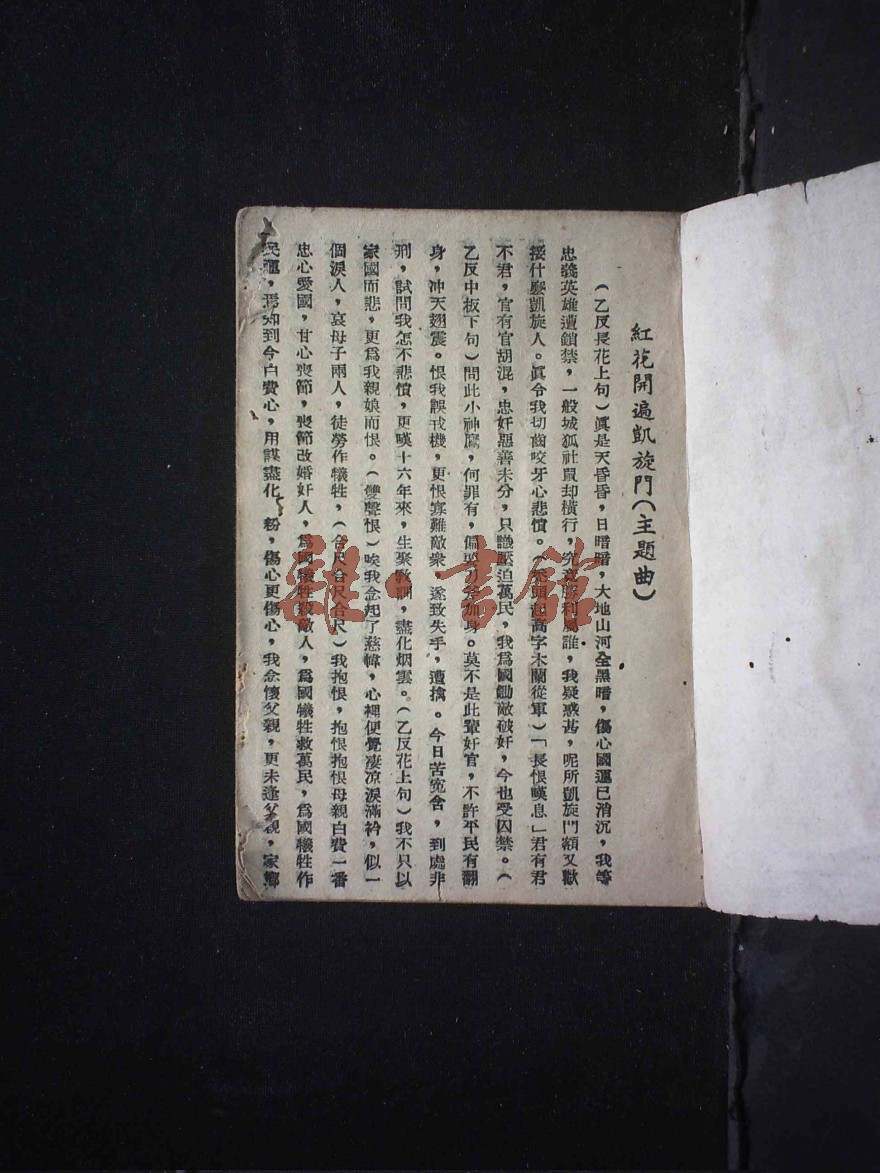 紅花開遍凱旋門(主題曲)
(乙反長花上句)眞是天昏昏，日暗暗，大地山河全黑暗，傷心國運已消沉，我等
忠義英雄遭鎖禁，一般城狐社鼠却橫行，究竟勝利屬誰，我疑惑甚，呢所凱旋門額又歡
接什麼凱旋人。眞令我切齒咬牙心悲憤。(尖頭起高字木蘭從軍)「長恨嘆息」君有君
不君，官有官胡混，忠奸惡善未分，只識壓迫萬民，我爲國鋤敵破奸，今也受囚禁。(
乙反中板下句)問此小神鷹，何罪有，偏要刀斧加身。莫不是此輩奸官，不許平民有翻
身，冲天翅震。恨我誤戎機，更恨寡難敵衆，遂致失手，遭擒。今日苦寃含，到處非
刑，試問我怎不悲憤，更嘆十六年來，生聚教訓，盡化烟雲。(乙反花上句)我不只以
家國而悲，更爲我親娘而恨。(雙聲恨)唉我念起了慈幃，心裡便覺凄凉淚滿衿，似一
個淚人，哀母子兩人，徒勞作犧牲，(合尺合尺合尺)我抱恨，抱恨抱恨母親白費一番
忠心愛國，甘心喪節，喪節改婚奸人，爲國犧牲殺敵人，爲國犧牲救萬民，爲國犧牲作
民運，焉知到今白費心，用謀盡化粉，傷心更傷心，我念懷父親，更未逢父親，家鄉
雜·書館